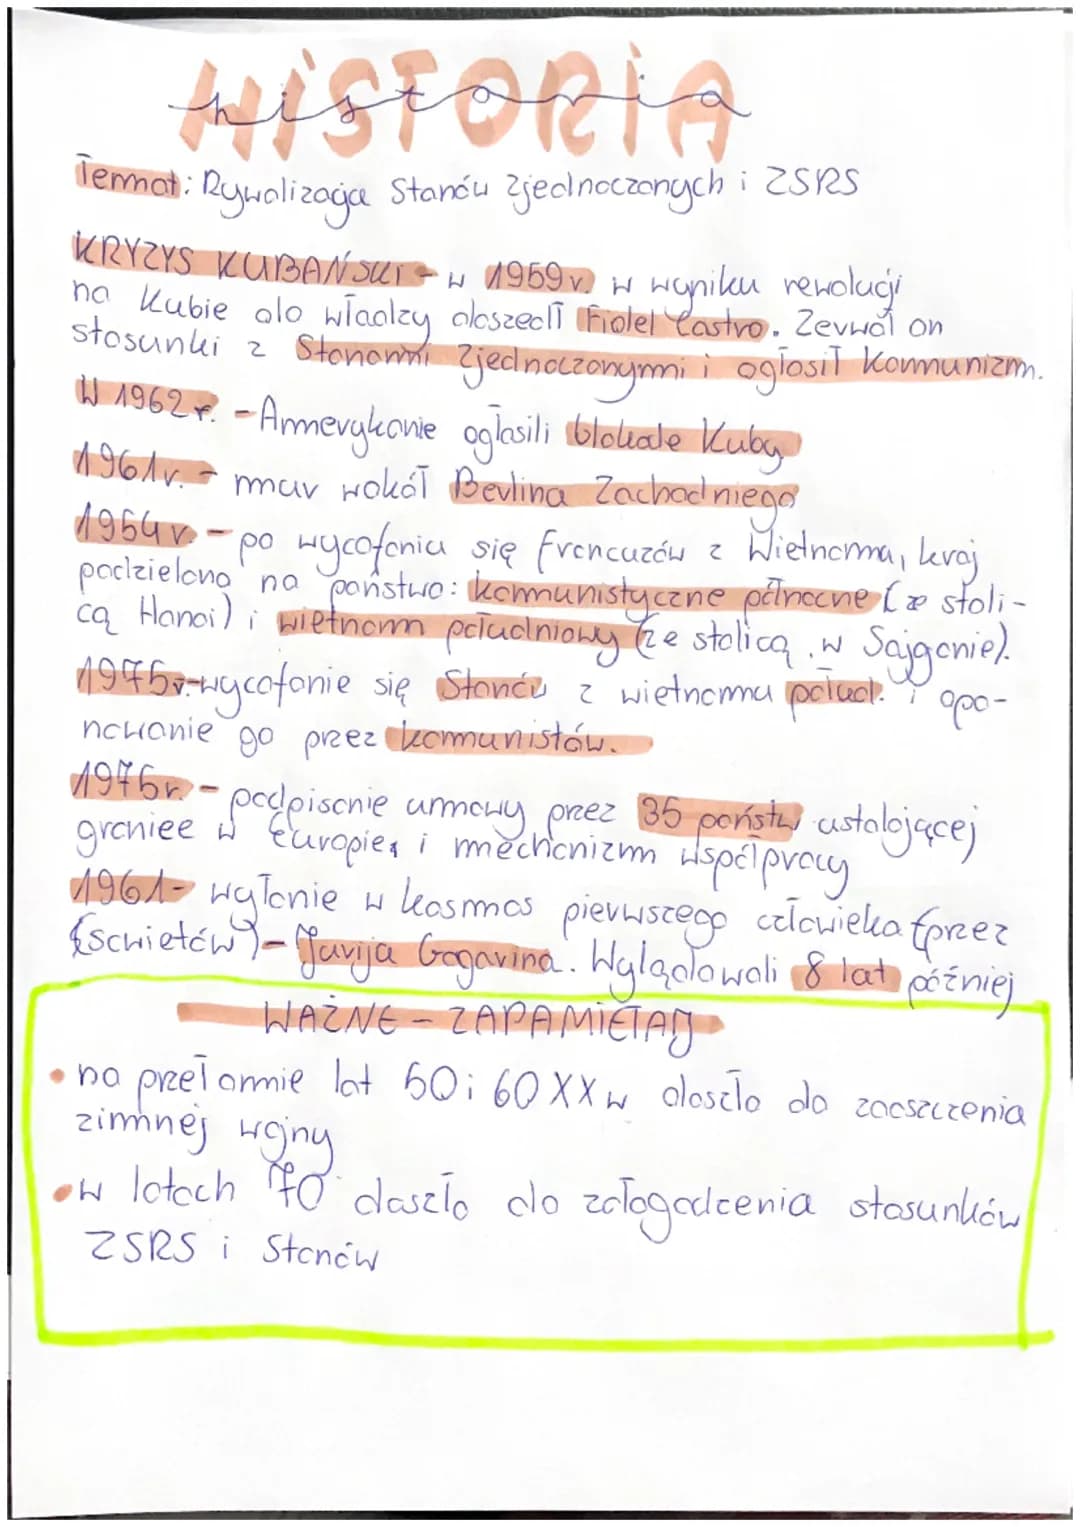 HISTORIA
historia
Temat: Rywalizacja Stanów Zjednoczonych i ZSRS
KRYZYS KUBAŃSKI - w 1959r. w wyniku rewolucji
na Kubie do władzy doszedł Fidel Castro. Zerwał on
stosunki z Stanami Zjednoczonymi i ogłosił komunizm.
W 1962r. - Amerykanie ogłosili blokade Kuby
1961r. - mur wokół Berlina Zachodniego
1954r. - po wycofaniu się francuzów z Wietnama, kraj
podzielono na państwo: komunistyczne północne (ze stoli-
cą Hanoi) i wietnam południowy (ze stolicą w Sajgonie).
1975r.-wycofanie się Stanów z wietnamu połud. i opa-
nowanie go przez komunistów.
1975r. - podpisanie umowy przez 35 państw ustalającej
granice w Europie, i mechanizm współpracy
1961- wysłanie w kosmos pierwszego człowieka (przez
sowietów) - Jurija Gagarina. Wylądowali 8 lat później
WAŻNE - ZAPAMIĘTAJ
• na przełomie lat 50 i 60 XX w doszło do zaoszczenia
zimnej wojny
• w latach 70 doszło do załogodzenia stosunków
ZSRS i Stanów